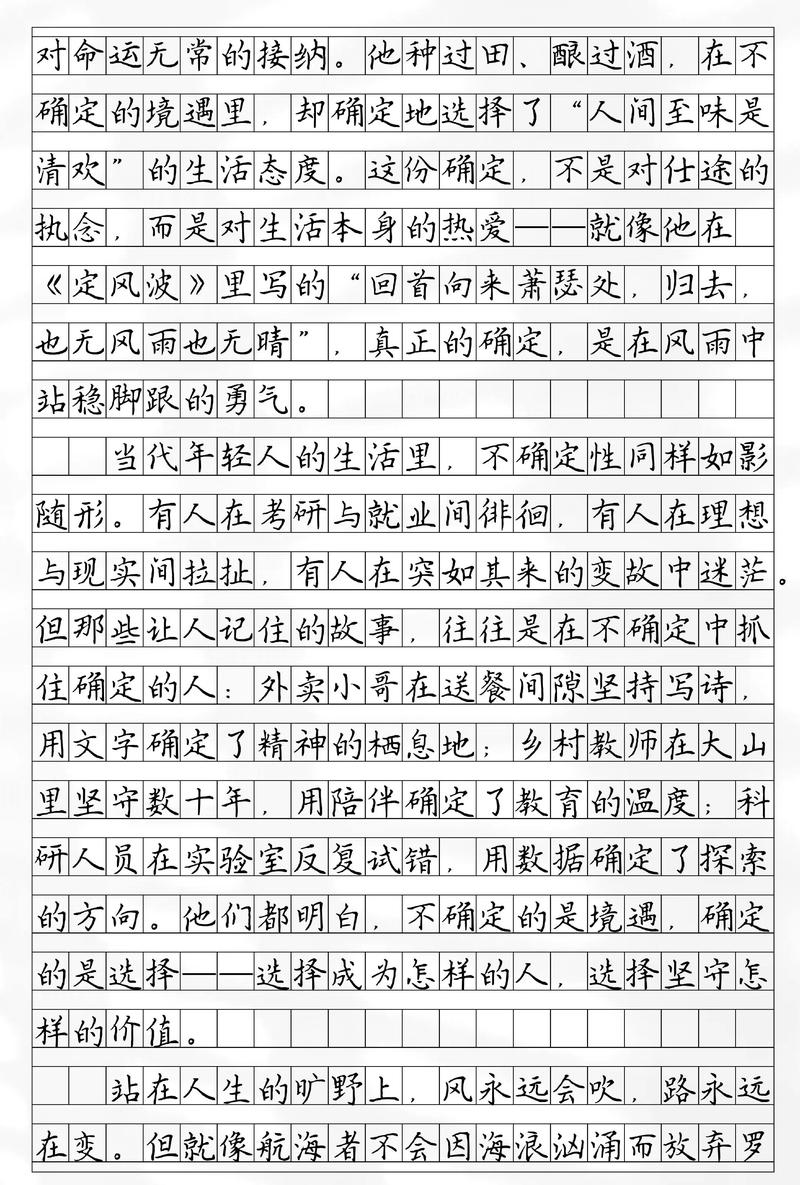 对命运无常的接纳。他种过田、酿过酒，在不
确定的境遇里，却确定地选择了“人间至味是
清欢”的生活态度。这份确定，不是对仕途的
执念，而是对生活本身的热爱——就像他在
《定风波》里写的“回首向来萧瑟处，归去，
也无风雨也无晴”，真正的确定，是在风雨中
站稳脚跟的勇气。
当代年轻人的生活里，不确定性同样如影
随形。有人在考研与就业间徘徊，有人在理想
与现实间拉扯，有人在突如其来的变故中迷茫。
但那些让人记住的故事，往往是在不确定中抓
住确定的人：外卖小哥在送餐间隙坚持写诗，
用文字确定了精神的栖息地；乡村教师在大山
里坚守数十年，用陪伴确定了教育的温度；科
研人员在实验室反复试错，用数据确定了探索
的方向。他们都明白，不确定的是境遇，确定
的是选择——选择成为怎样的人，选择坚守怎
样的价值。
站在人生的旷野上，风永远会吹，路永远
在变。但就像航海者不会因海浪汹涌而放弃罗